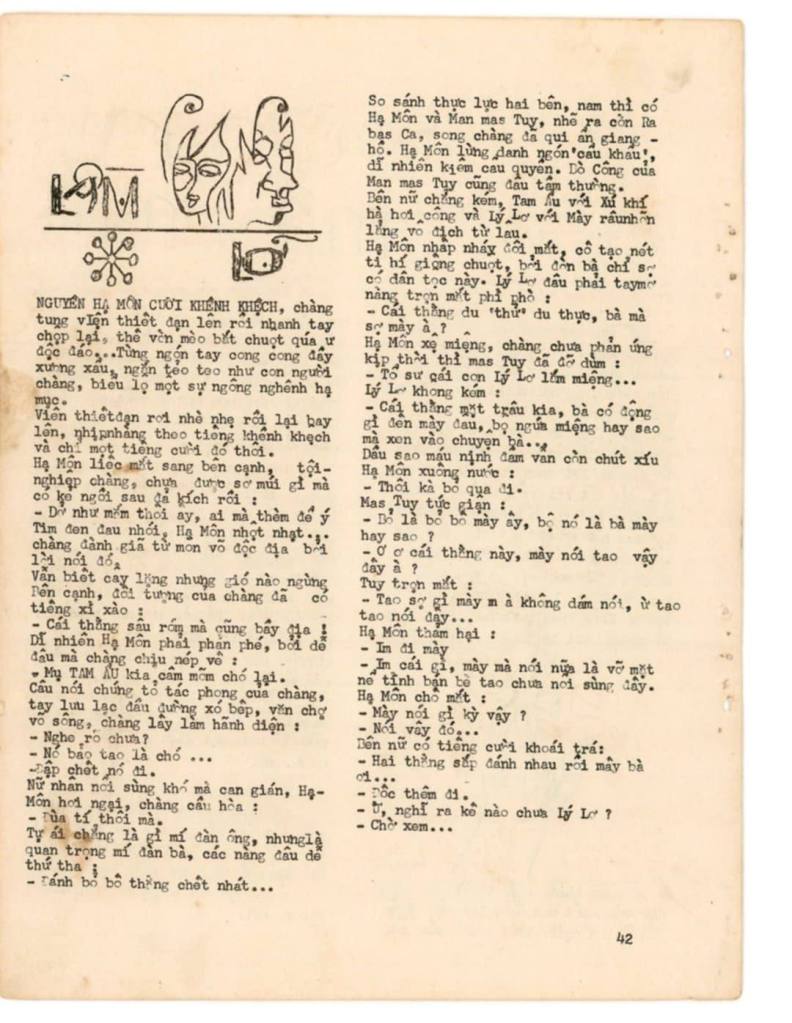 LÂM
LƠ
NGUYỄN HẠ MÔN CƯỜI KHỀNH KHỆCH, chàng
tung viên thiết đạn lên rồi nhanh tay
chọp lại, thế vờn mèo bắt chuột qúa ư
độc đáo...Từng ngón tay cong cong đầy
xương xẩu, ngắn tẻo teo như con người
chàng, biểu lộ một sự ngông nghênh hạ
mục.
Viên thiếtđạn rơi nhè nhẹ rồi lại bay
lên, nhịpnhàng theo tiếng khềnh khệch
và chỉ một tiếng cười đó thôi.
Hạ Môn liếc mắt sang bên cạnh, tội-
nghiệp chàng, chưa được sơ múi gì mà
có kẻ ngồi sau đả kích rồi :
- Dơ như mắm thối ấy, ai mà thèm để ý
Tim đen đau nhói, Hạ Môn nhột nhạt...
chàng đành giã từ món võ độc địa bởi
lời nói đó.
Vẫn biết cay lắng nhưng gió nào ngừng
Bên cạnh, đối tượng của chàng đã có
tiếng xì xào :
- Cái thằng sâu róm mà cũng bầy địa :
Dĩ nhiên Hạ Môn phải phản phé, bởi dễ
đâu mà chàng chịu nép vế :
- Mụ TAM ẤU kia câm mõm chó lại.
Câu nói chứng tỏ tác phong của chàng,
tay lưu lạc đầu đường xó bếp, văn chợ
võ sông, chàng lấy làm hãnh diện :
- Nghe rõ chưa?
- Nó bảo tao là chó ...
-Đập chết nó đi.
Nữ nhân nổi sùng khó mà can gián, Hạ-
Môn hơi ngại, chàng cầu hòa :
- Đùa tí thôi mà.
Tự ái chẳng là gì mí đàn ông, nhưnglà
quan trọng mí đàn bà, các nàng đâu dễ
thứ tha :
- Đánh bỏ bố thằng chết nhát...
So sánh thực lực hai bên, nam thì có
Hạ Môn và Man mas Tuy, nhẽ ra còn Ra
bas Ca, song chàng đã qui ẩn giang -
hồ. Hạ Môn lừng danh ngón'cẩu khẩu',
dĩ nhiên kiêm cẩu quyền. Dò Công của
Man mas Tuy cũng đâu tầm thường.
Bên nữ chẳng kém, Tam Ấu với Xú khí
hà hơi công và Lý Lơ với Mày râunhẵn
lẳng vô địch từ lâu.
Hạ Môn nhấp nháy đôi mắt, cố tạo nét
ti hí giống chuột, bởi đờn bà chỉ sợ
có dân tộc này. Lý Lơ đâu phải taymơ
nàng trợn mắt phì phò :
- Cái thằng du 'thử' du thực, bà mà
sợ mày à ?
Hạ Môn xệ miệng, chàng chưa phản ứng
kịp thời thì mas Tuy đã đỡ dùm :
- Tổ sư gái con Lý Lơ lắm miệng...
Lý Lơ không kém :
- Cái thằng mặt trâu kia, bà có động
gì đến mày đâu, bộ ngứa miệng hay sao
mà xen vào chuyện bà...
Dầu sao máu nịnh đầm vẫn còn chút xíu
Hạ Môn xuống nước :
- Thôi kà bỏ qua đi.
Mas Tuy tức giận :
- Bỏ là bỏ bố mày ấy, bộ nó là bà mày
hay sao ?
- Ơ ơ cái thằng này, mày nói tao vậy
đấy à ?
Tuy trợn mắt :
- Tao sợ gì mày m à không dám nói, ừ tao
tao nói đấy...
Hạ Môn thảm hại :
- Im đi mày
- Im cái gì, mày mà nói nữa là vỡ mặt
nể tình bạn bè tao chưa nổi sùng đấy.
Hạ Môn chố mắt :
- Mày nói gì kỳ vậy ?
- Nói vậy đó...
Bên nữ có tiếng cười khoái trá:
- Hai thằng sắp đánh nhau rồi mấy bà
ơi...
- Dốc thêm đi.
- Ừ, nghĩ ra kế nào chưa Lý Lơ ?
- Chờ xem...
42